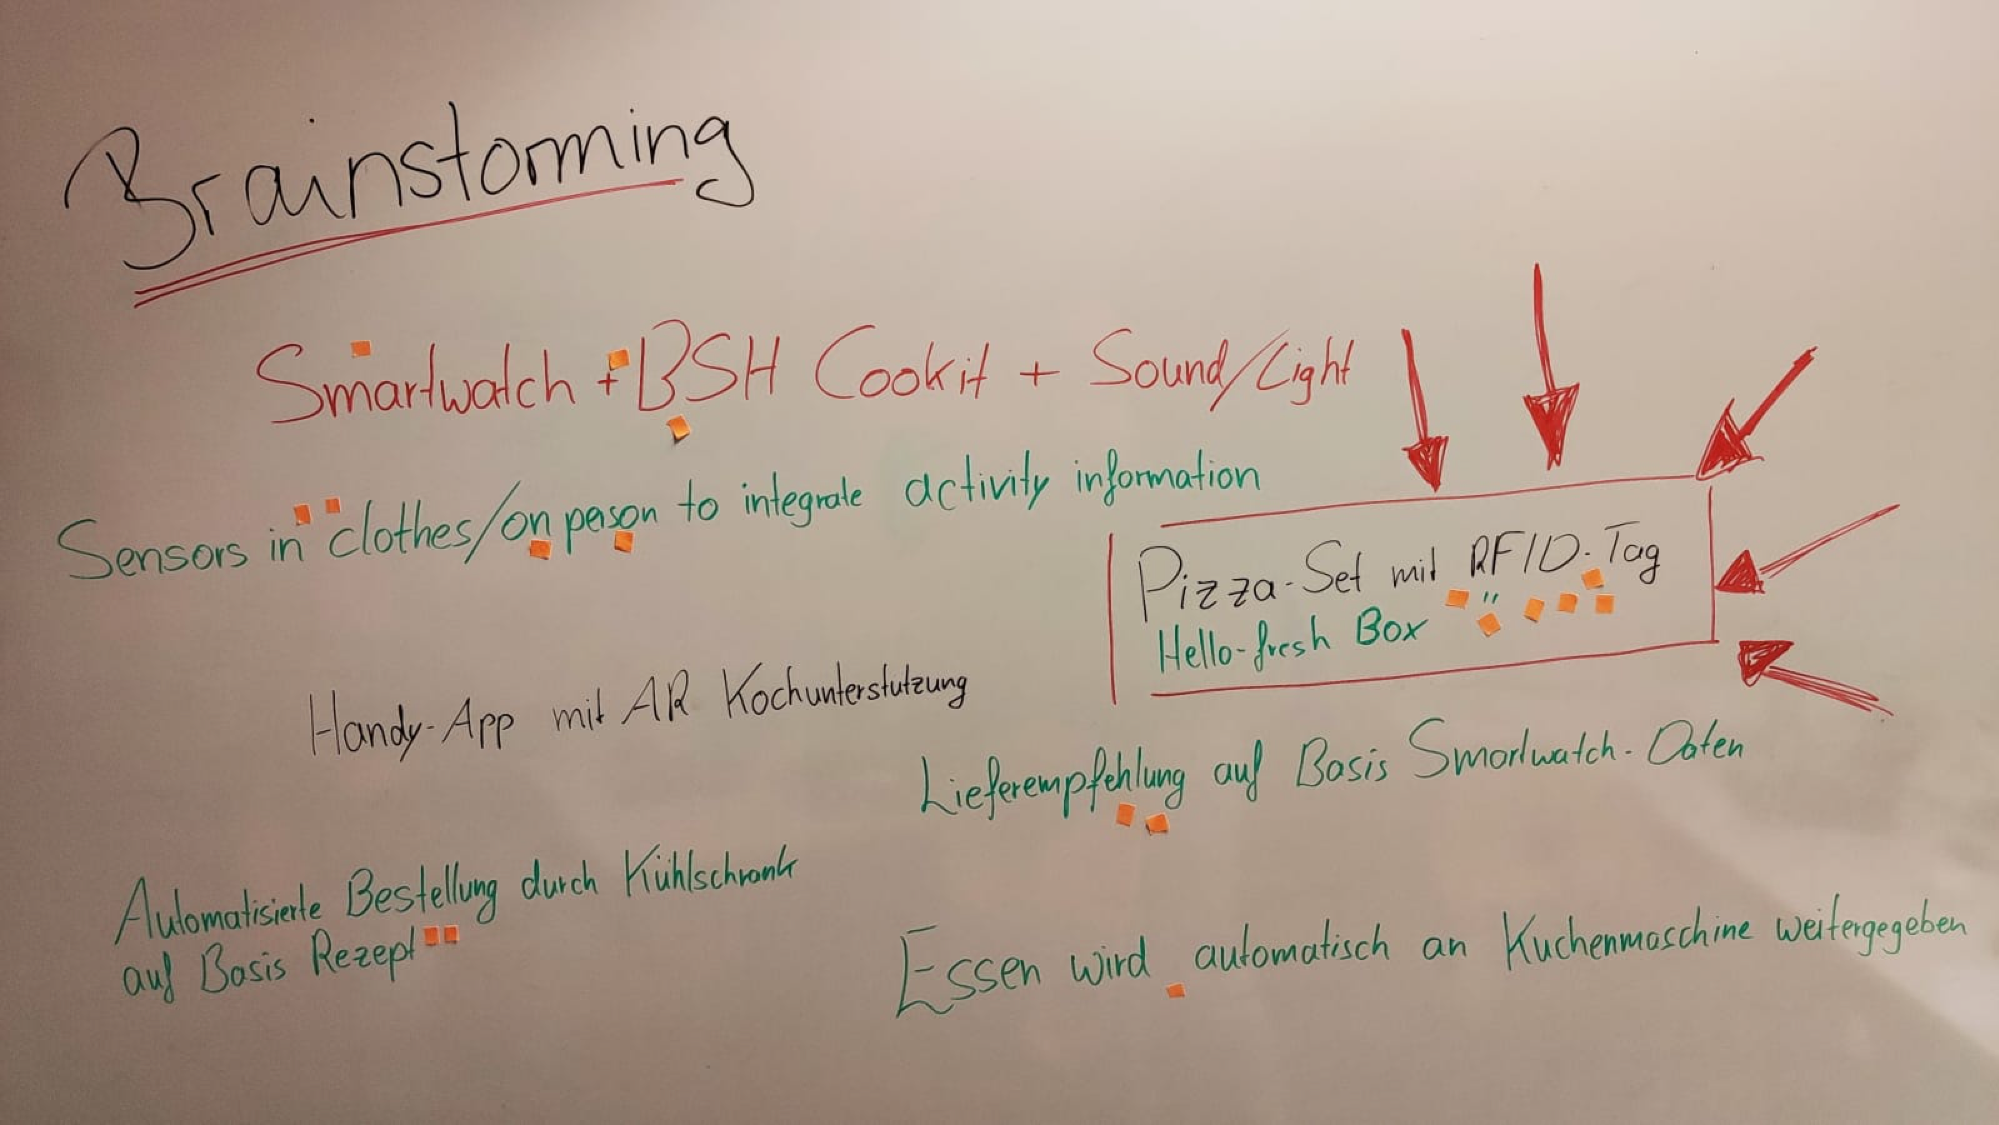 Brainstorming
Smartwatch + BSH Cookit + Sound/Light
Sensors in clothes/on person to integrate activity information
Pizza-Set mit RFID-Tag
Hello-fresh Box "
Handy-App mit AR Kochunterstutzung
Lieferempfehlung auf Basis Smartwatch-Daten
Automatisierte Bestellung durch Kühlschrank
auf Basis Rezept
Essen wird automatisch an Kuchenmaschine weitergegeben